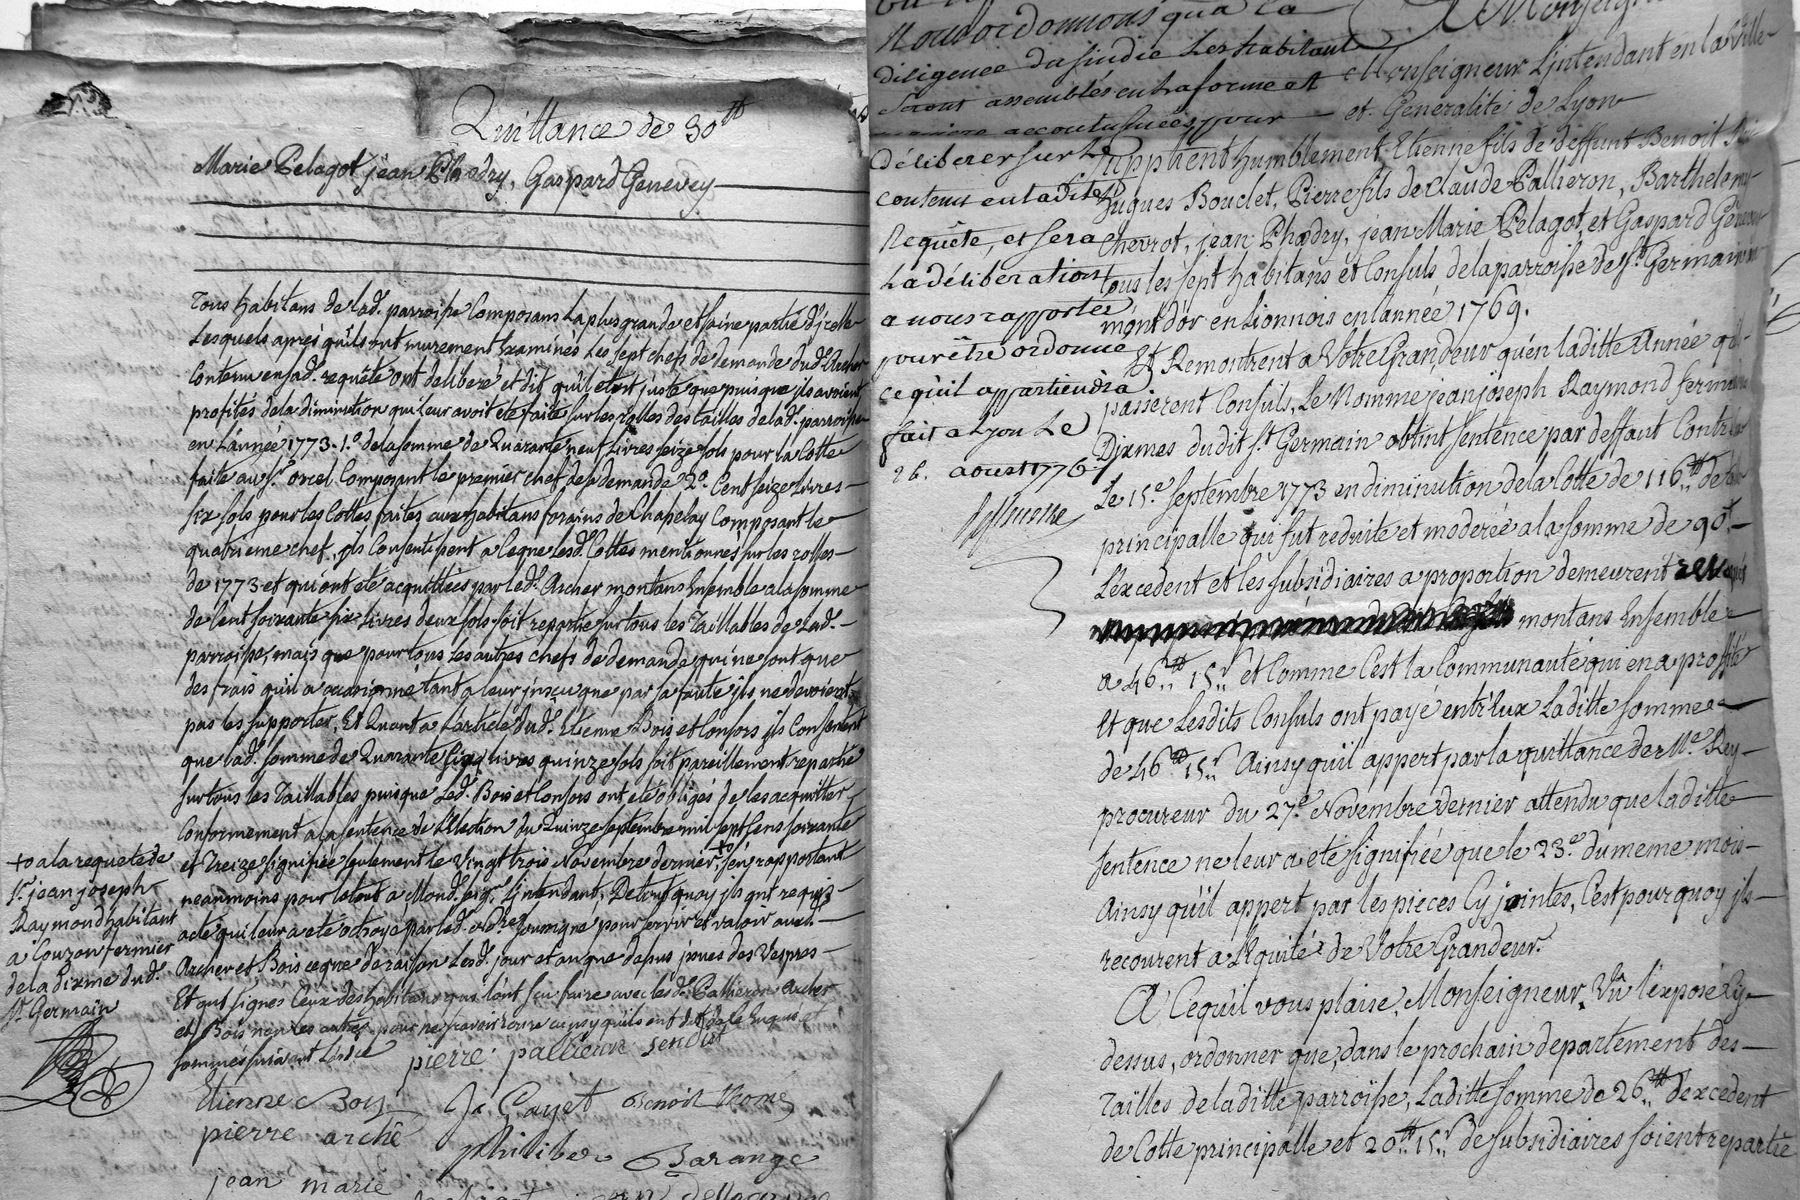 Quittance de 30tt
Marie Pelagot jean Phadry, Gaspard Genevey
Tous habitans de lad. parroisse Composans la plus grande et saine partie d'jcelle
Lesquels après qu'ils ont murement Examinés Les sept chefs de demande dud. Archer
Contenu en sad. requête ont deliberé et dit qu'il etoit juste que puis que ils avoient
profités de la diminution qui leur avoit eté faite sur les rolles des tailles de lad. parroisse
en L'année 1773. 1.º de la somme de Quarante neuf Livres seize sols pour la Cotte
faite au s.r orcel Composant le premier chef de demande 2.º Cent seize Livres
six sols pour les Cottes faites aux habitans forains de Chapelay Composant le
quatrieme chef, ils Consentissent a ceque lesd. Cottes mentionnés sur les rolles
de 1773 et qui ont eté acquittées par led. Archer montans Ensemble a la somme
de Cent soixante six Livres deux sols soit repartie sur tous les Taillables de lad.
parroisse, mais que pour tous les autres chefs de demande qui ne sont que
des frais qu'il a occasionné tant a leur jnscu que par sa faute ils ne devoient
pas les supporter, Et Quant a L'article dud. Etienne Bois et Consors ils Consentent
que lad. somme de Quarante six livres quinze sols soit pareillement repartie
sur tous les Taillables puisque Led. Bois et Consors ont eté obligés de les acquitter
Conformement a la sentence de L'Election du Quinze septembre mil sept Cens soixante
et Treize signifiée seulement le Vingt trois Novembre dernier +o s'en rapportant
neanmoins pour le tout a Mond. seigr. L'intendant, De tout quoy ils ont requis
acte qui leur a eté octroyé par led. no.re Soussigné pour servir et valoir aud.
Archer et Bois ceque de raison Lesd. jour et an que dessus jssues des Vespres
Et ont signés Ceux des habitans qui l'ont sçu faire avec lesd. Pallieron Archer
et Bois non les autres pour ne sçavoir
+o a la requete de
s.r jean joseph
Raymond habitant
a Couzon fermier
de la Dixme dud.
St. Germain
pierre pallieron sendit
Etienne Boy
Gayet Benoit
pierre arché
philiber Barange
jean marie
Nous ordonnons qua la
diligence du sindic Les habitant
seront assemblés en la forme et
maniere accoutumées pour
déliberer sur Le
contenu en ladite
Requête, et sera
La déliberation
a nous rapportée
pour être ordonné
ce qu'il appartiendra
fait a Lyon Le
26. aoust 1776
Monseigneur
Monseigneur L'intendant en la Ville
et Generalité de Lyon
supplient humblement Etienne fils de deffunt Benoit
hugues Bouclet, Pierre fils de Claude Pallieron, Barthelemy
Chevrot, jean Phadry, jean Marie Pelagot, et Gaspard Genevey
tous les sept habitans et Consuls de la parroisse de St. Germain
mont d'or en Lionnois en L'année 1769.
Et Remontrent a Votre Grandeur, qu'en laditte Année
passerent Consuls, Le Nomme jean joseph Raymond fermier
Dixmes du dit St. Germain obtint sentence par deffaut Contre
Le 15.e septembre 1773 en diminution de la Cotte de 116.tt de
principalle qui fut reduite et moderée a la somme de 90.tt
L'excedent et les subsidiaires a proportion demeurent
montans Ensemble
a 46.tt 15.s et Comme C'est la Communauté qui en a profité
et que Lesdits Consuls ont payé entr'eux Laditte somme
de 46.tt 15.s Ainsy qu'il appert par la quittance de M.e Rey
procureur du 27.e Novembre dernier attendu que laditte
sentence ne leur a eté signifiée que le 23.e du meme mois
Ainsy qu'il appert par les pieces Cy jointes, C'est pourquoy ils
recourent a L'Equité de Votre Grandeur.
A Cequ'il vous plaise, Monseigneur, Vû L'exposé Cy
dessus, ordonner que, dans le prochain departement des
Tailles de laditte parroisse, Laditte somme de 26.tt d'excedent
de Cotte principalle et 20.tt 15.s de subsidiaires soient repartie